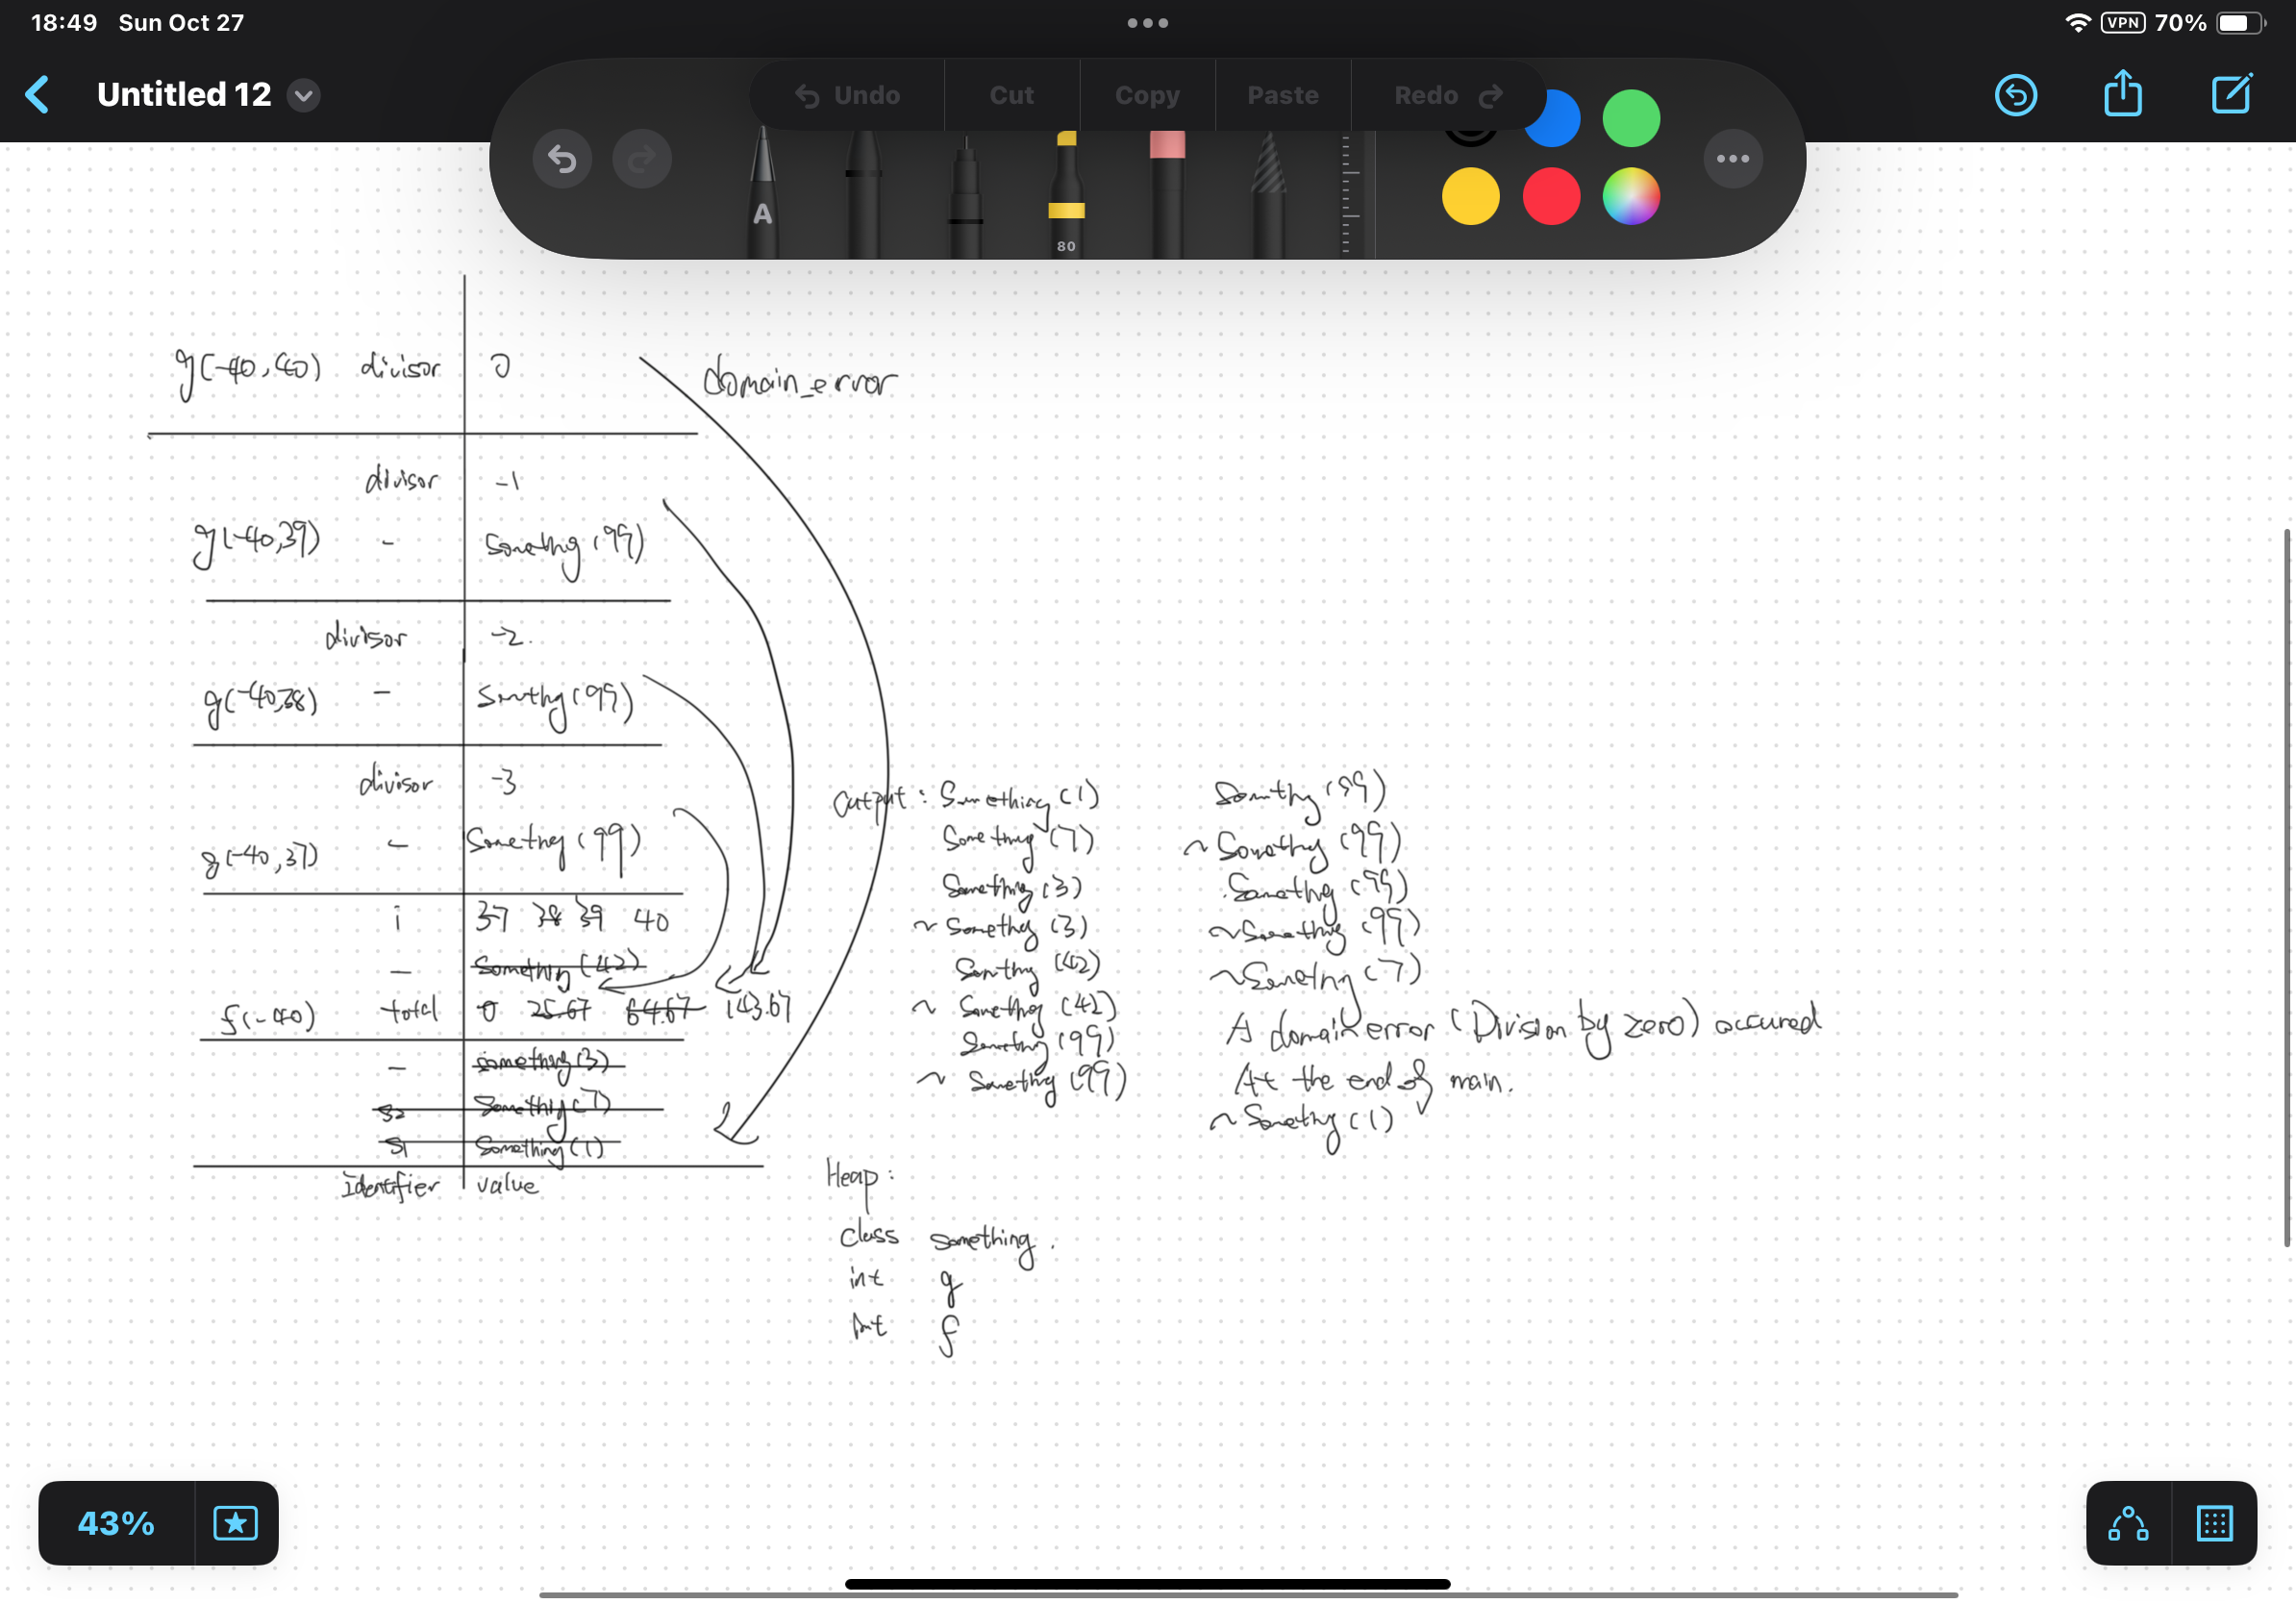 18:49 Sun Oct 27
VPN 70%
Untitled 12
Undo Cut Copy Paste Redo
A
80
g(-40,40) divisor 0
domain_error
divisor -1
g(-40,39) - Something (99)
divisor -2.
g(-40,38) - Something (99)
divisor -3
g(-40,37) - Something (99)
i 37 38 39 40
- Something (42)
f(-40) total 0 25.67 64.67 143.67
- something (3)
s2 Something (7)
s1 Something (1)
Identifier value
Output: Something (1)
Something (7)
Something (3)
~ Something (3)
Something (42)
~ Something (42)
Something (99)
~ Something (99)
Something (99)
~ Something (99)
Something (99)
~ Something (99)
~ Something (7)
A domain error (Division by zero) occured
At the end of main.
~ Something (1)
Heap:
class something.
int g
int f
43%